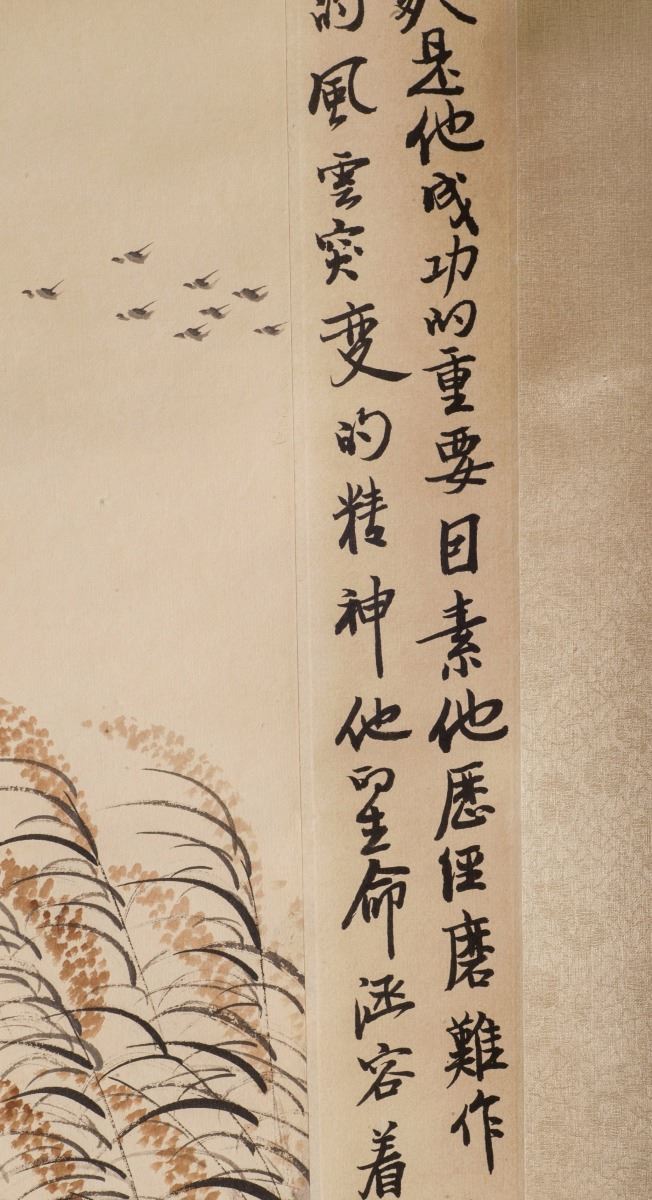 是他成功的重要因素他歷經磨難作
的風雲突变的精神他的生命涵容着